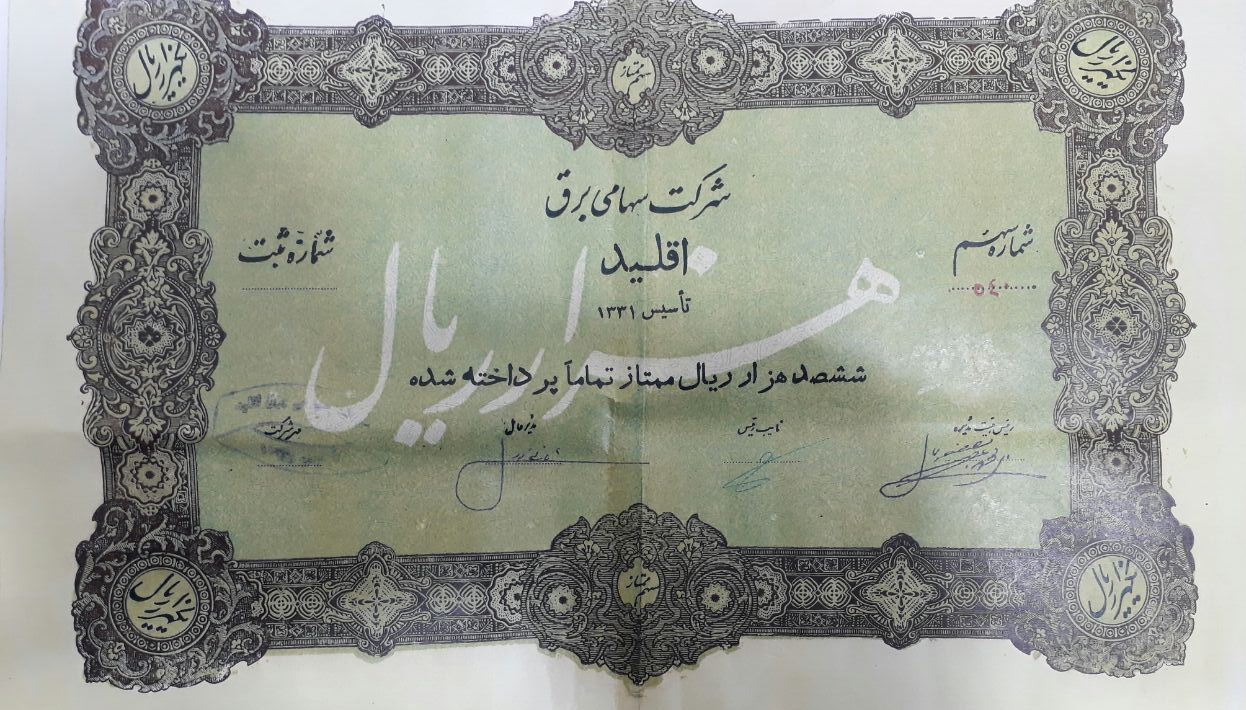 یکهزار ریال
سهم ممتاز
یکهزار ریال
شرکت سهامی برق
اقلید
تأسیس ۱۳۳۱
شماره سهم
شماره ثبت
هزار ریال
ششصد هزار ریال ممتاز تماماً پرداخته شده
رئیس هیئت مدیره
نایب رئیس
مدیرعامل
مهر شرکت
یکهزار ریال
سهم ممتاز
یکهزار ریال